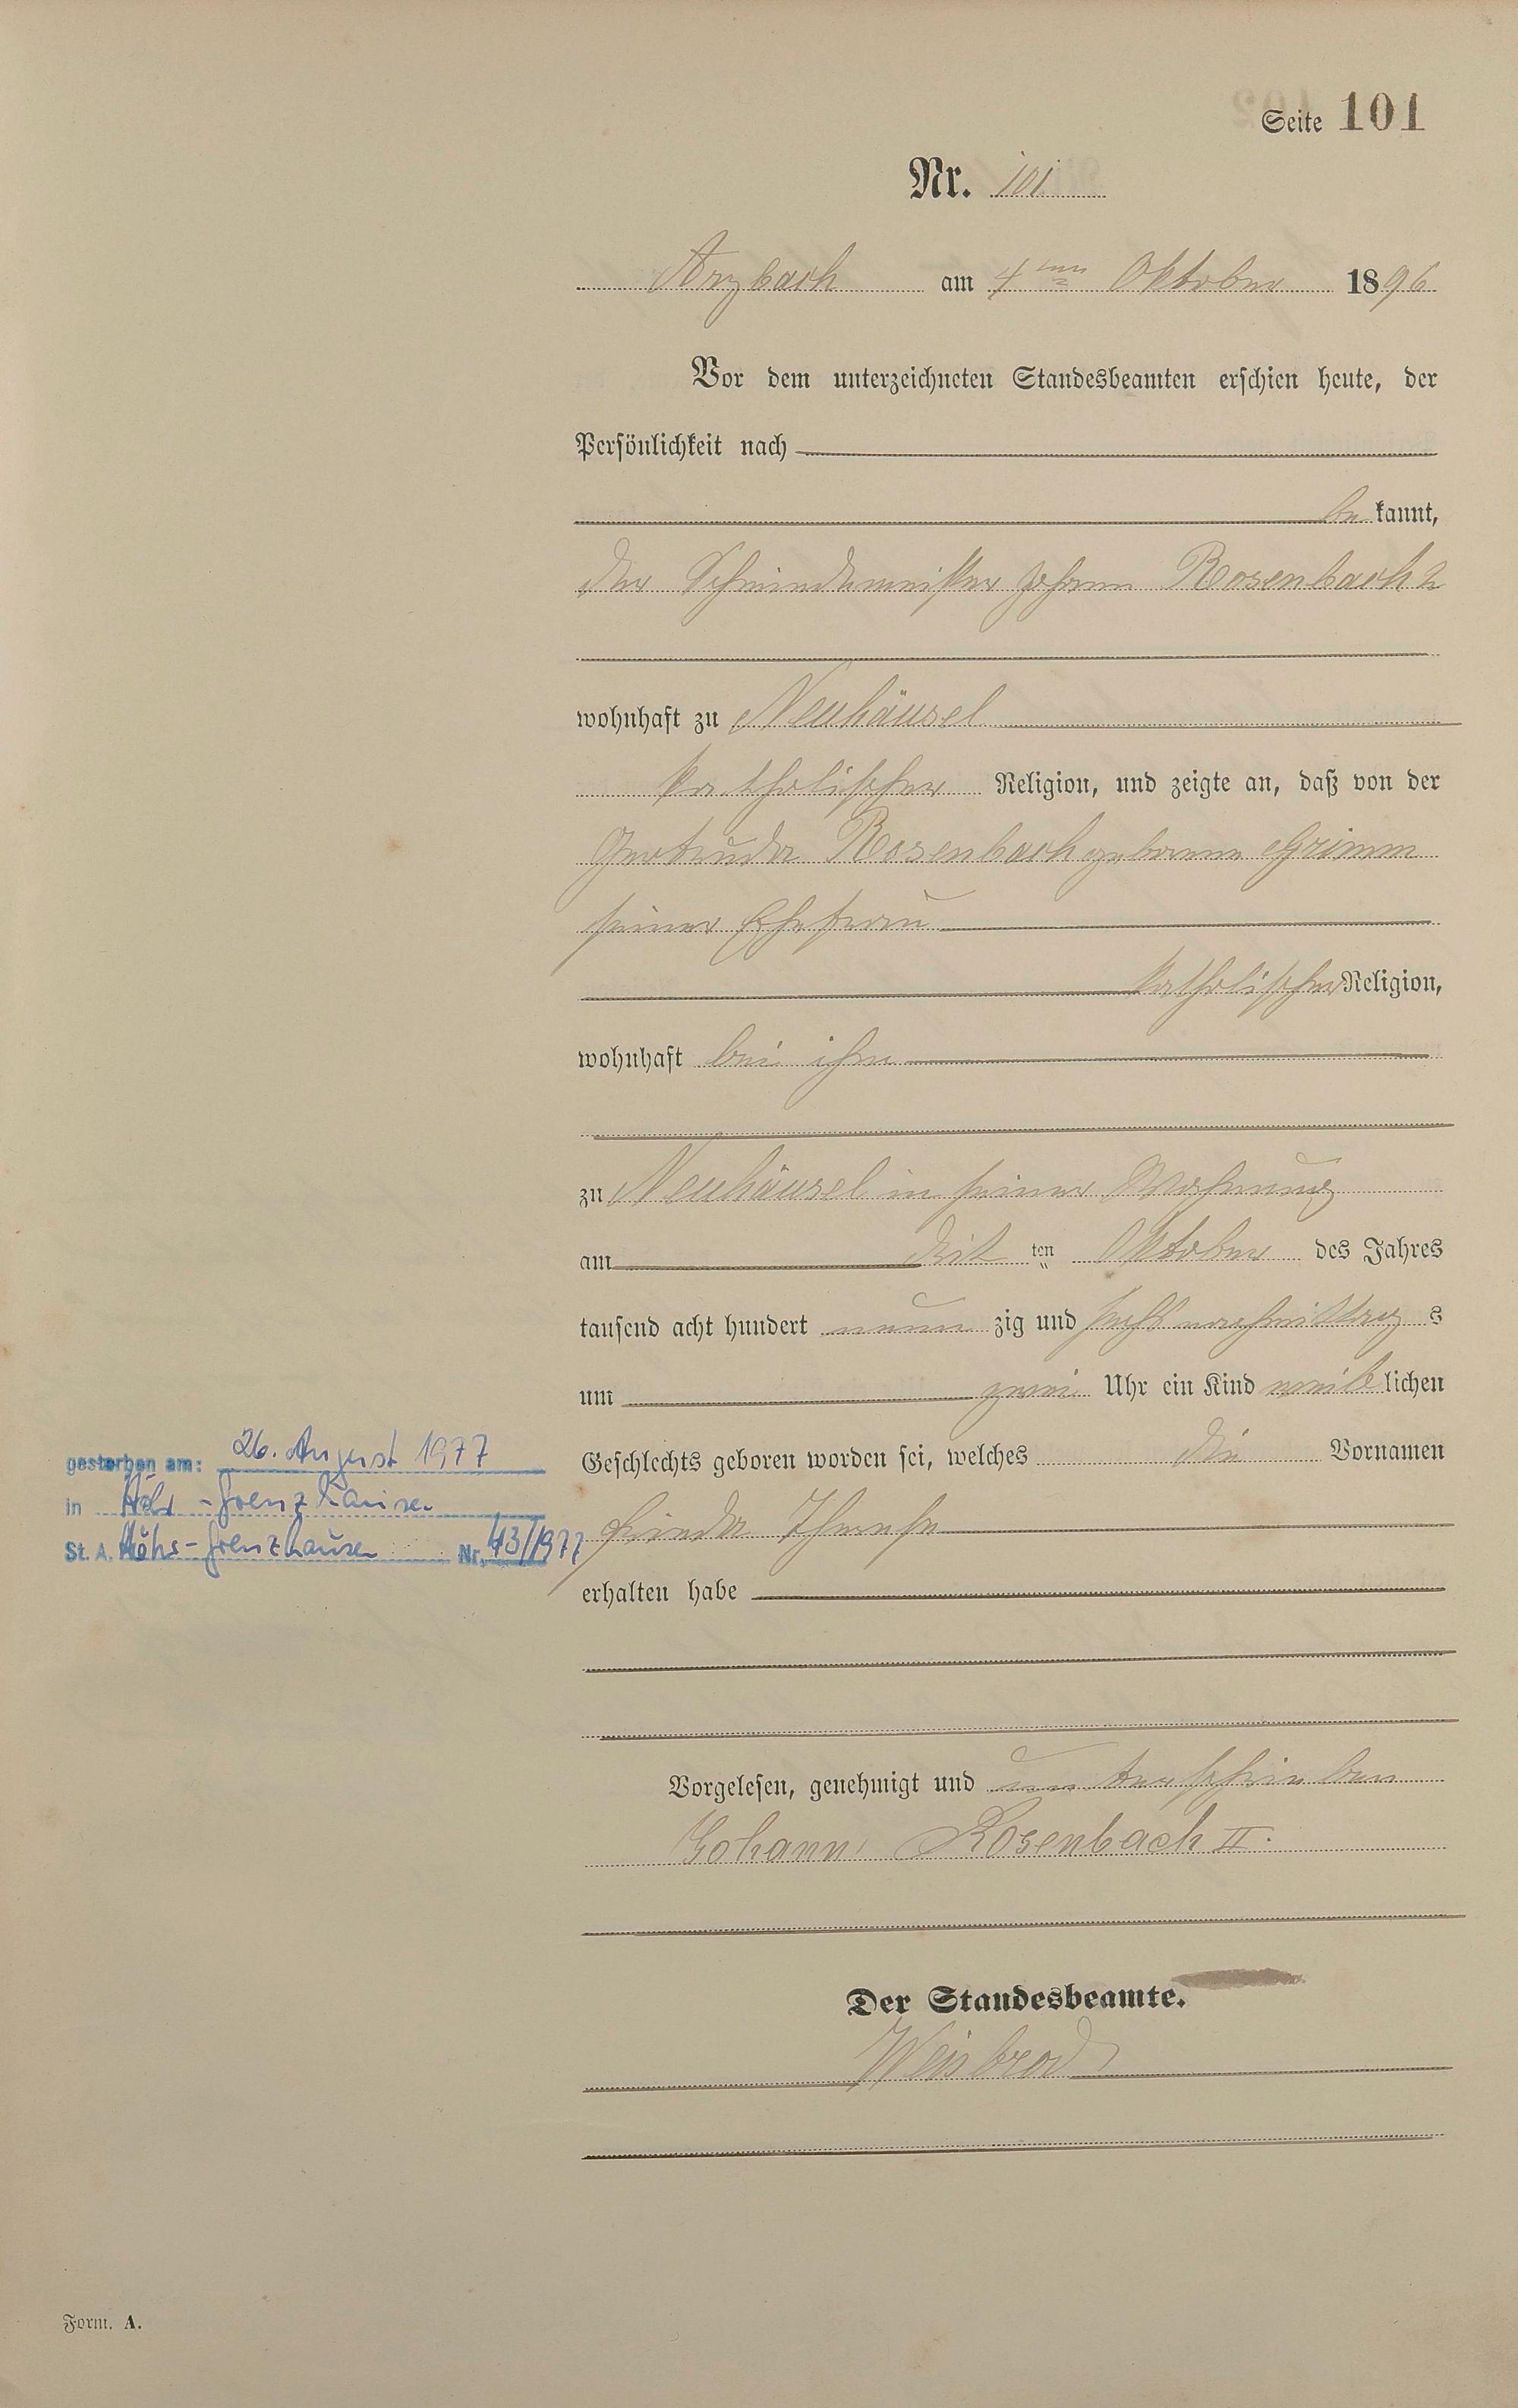 Seite 101
Nr. 101
Arzbach am 4ten Oktober 1896
Vor dem unterzeichneten Standesbeamten erschien heute, der
Persönlichkeit nach
be kannt,
der Schmiedemeister Johann Rosenbach 2
wohnhaft zu Neuhäusel
katholischer Religion, und zeigte an, daß von der
Gertruda Rosenbach geborene Grimm
seiner Ehefrau
katholischer Religion,
wohnhaft bei ihm
zu Neuhäusel in seiner Wohnung
am drit ten Oktober des Jahres
tausend acht hundert neun zig und sechs nachmittag s
um zwei Uhr ein Kind weib lichen
Geschlechts geboren worden sei, welches die Vornamen
gestorben am: 26. August 1977
in Höhr-Grenzhausen
St. A. Höhr-Grenzhausen Nr. 43/1977
Frieda Therese
erhalten habe
Vorgelesen, genehmigt und unterschrieben
Johann Rosenbach II.
Der Standesbeamte.
Weisbrod
Form. A.